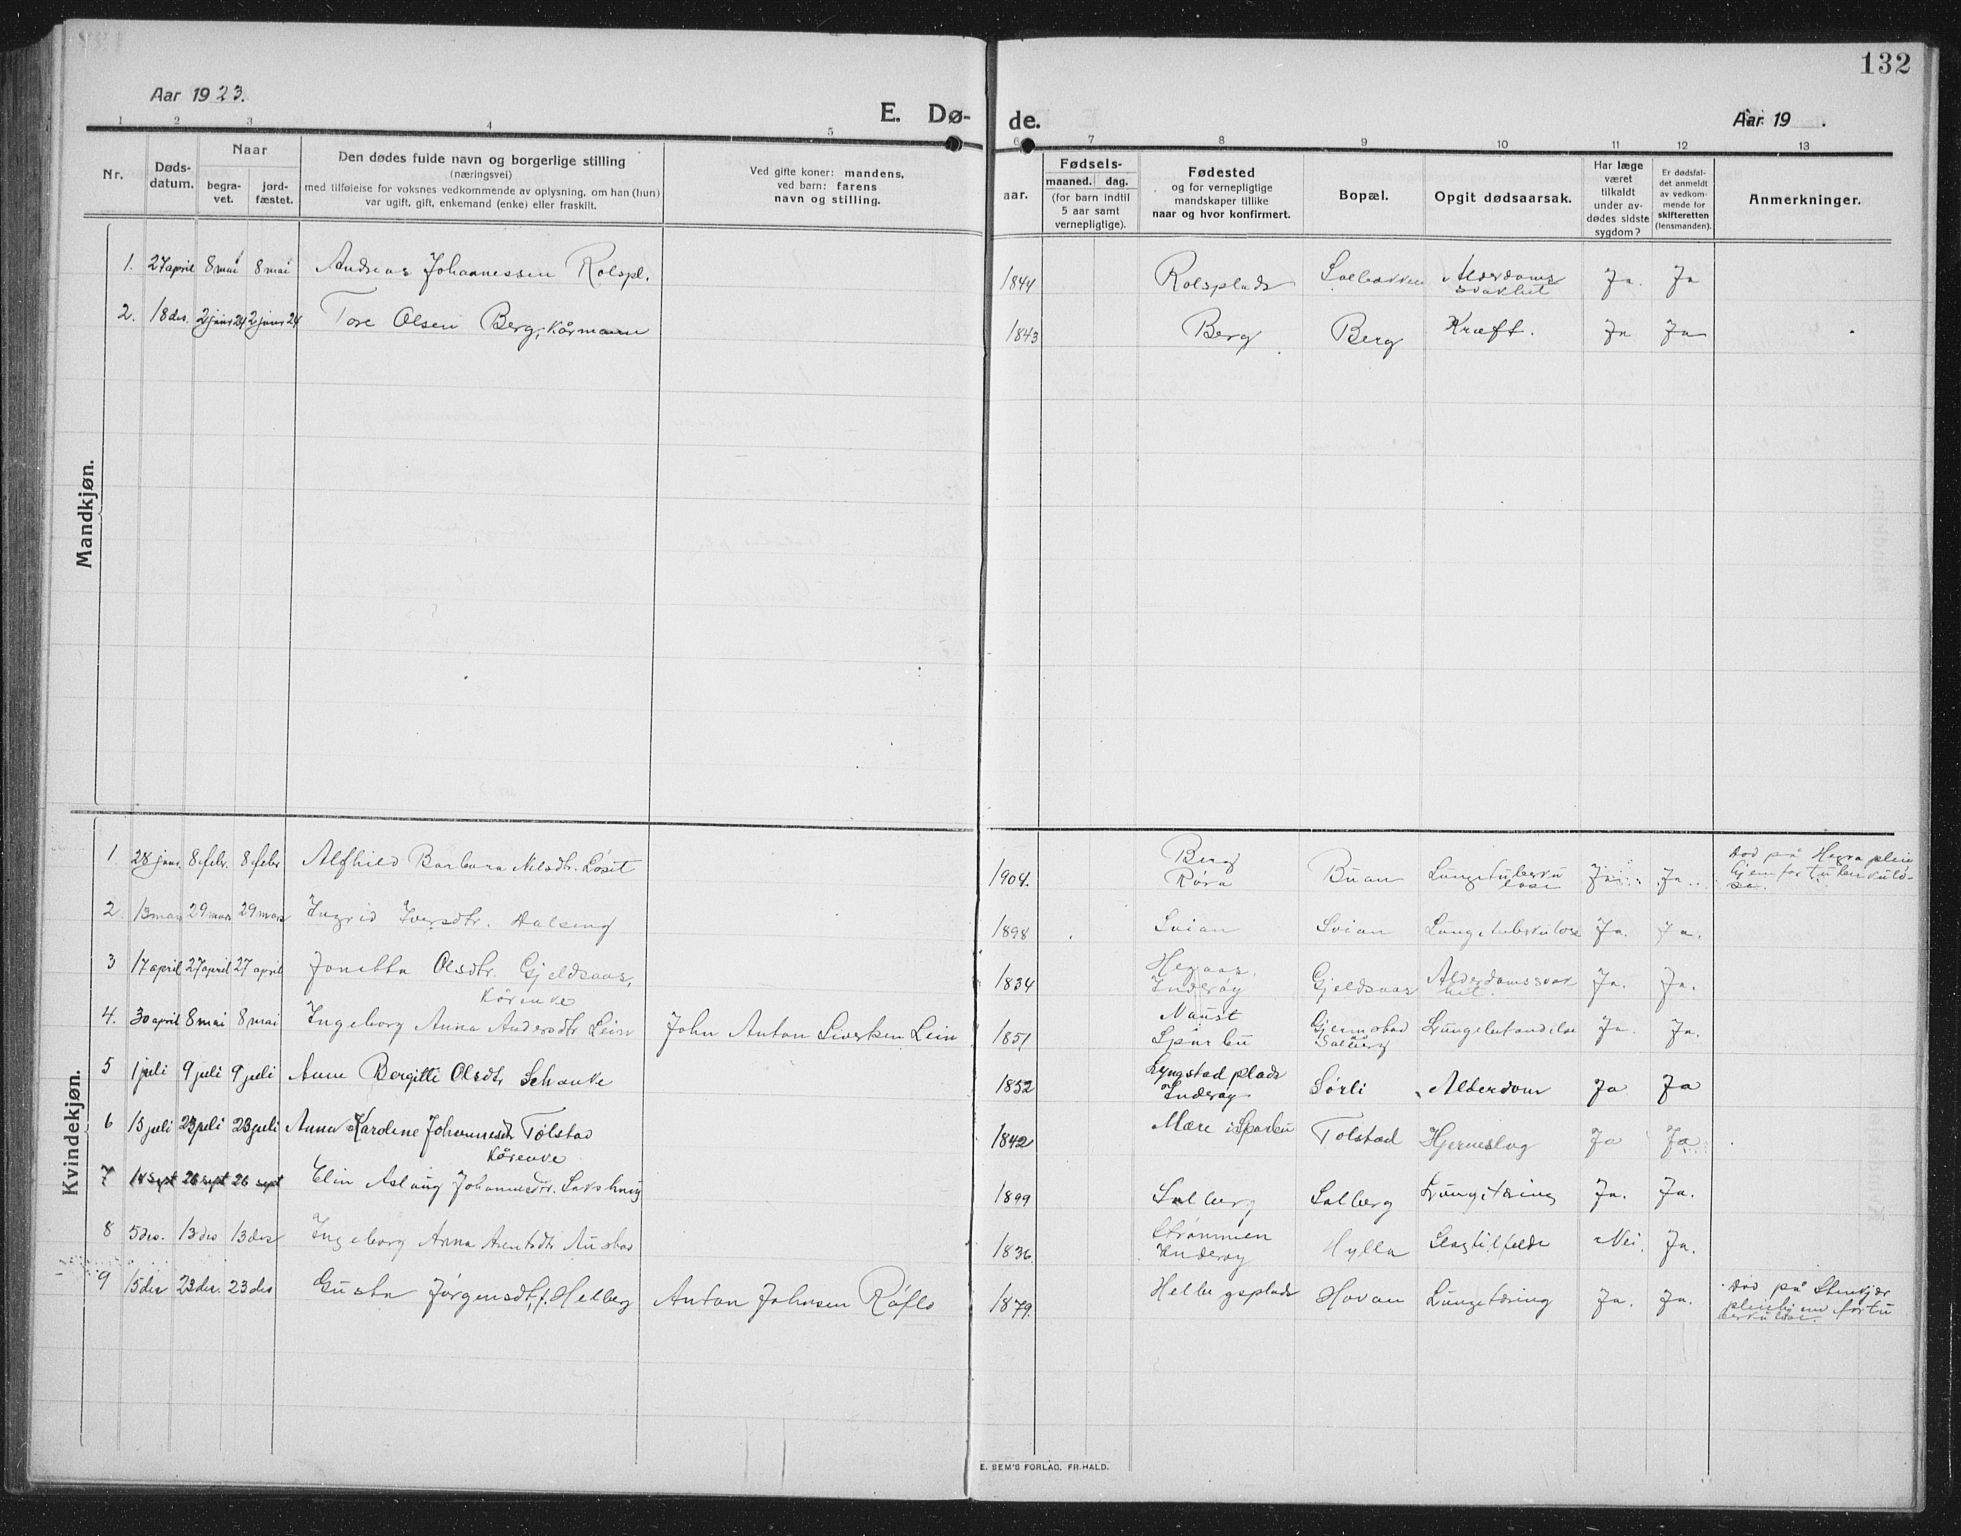 132
Aar 1923.
E. Dø-
de.
Aar 19 .
1 2 3 4 5
6 7 8 9 10 11 12 13
Nr.
Døds-
datum.
Naar
begra-
vet.
jord-
fæstet.
Den dødes fulde navn og borgerlige stilling
(næringsvei)
med tilføielse for voksnes vedkommende av oplysning, om han (hun)
var ugift, gift, enkemand (enke) eller fraskilt.
Ved gifte koner: mandens,
ved barn: farens
navn og stilling.
aar.
Fødsels-
maaned. dag.
(for barn indtil
5 aar samt
vernepligtige).
Fødested
og for vernepligtige
mandskaper tillike
naar og hvor konfirmert.
Bopæl.
Opgit dødsaarsak.
Har læge
været
tilkaldt
under av-
dødes sidste
sygdom?
Er dødsfal-
det anmeldt
av vedkom-
mende for
skifteretten
(lensmanden).
Anmerkninger.
Mandkjøn.
1. 27 april 8 mai 8 mai Andreas Johannessen Rolspl. 1844 Rolsplads Salbakken Alderdoms
svakhet Ja. Ja
2. 18 des. 2 janr 24 2 janr 24 Tore Olsen Berg, kårmann 1843 Berg Berg Kræft. Ja Ja
Kvindekjøn.
1. 28 janr. 8 febr. 8 febr Alfhild Barbara Nilsdtr. Løsit 1904. Berg
Røra Buan Lungetuberku
lose Ja Ja Død på Hegra pleie
hjem for tuberkulo-
se.
2. 13 mars 29 mars 29 mars Ingrid Iversdtr. Halseng 1898 Svian Svian Lungetuberkulose Ja. Ja.
3 17 april 27 april 27 april Jonetta Olsdtr. Gjeldsaas,
kårenke 1834 Hegaas.
Inderøy Gjeldsaas Alderdomssvak
het. Ja. Ja.
4. 30 april 8 mai 8 mai Ingeborg Anna Andersdtr Lein John Anton Sivertsen Lein 1851 Naust
i Sparbu Gjermstad
Salberg Lungebetændelse Ja. Ja.
5 1 juli 9 juli 9 juli Anne Bergitte Olsdtr Schanke 1852 Lyngstad plads
Inderøy Sørli Alderdom Ja Ja
6 13 juli 23 juli 23 juli Anna Karoline Johannesdtr Tolstad
kårenke 1842 Mære i Sparbu Tolstad Hjerneslag Ja Ja
7 14 sept 26 sept 26 sept Elin Aslaug Johannesdtr. Sakshaug 1899 Salberg Salberg Lungetæring Ja. Ja.
8 5 des. 13 des 13 des Ingeborg Anna Arentsdtr Austad 1836 Strømmen
Inderøy Hylla Slagtilfelde Nei. Ja.
9 15 des 23 des. 23 des Gusta Jørgensdt, f. Helberg Anton Johnsen Røflo 1879. Helbergsplads Hovan Lungetæring Ja. Ja. Død på Stenkjær
pleiehjem for tu
berkulose.
E. SEM'S FORLAG, FR.HALD.